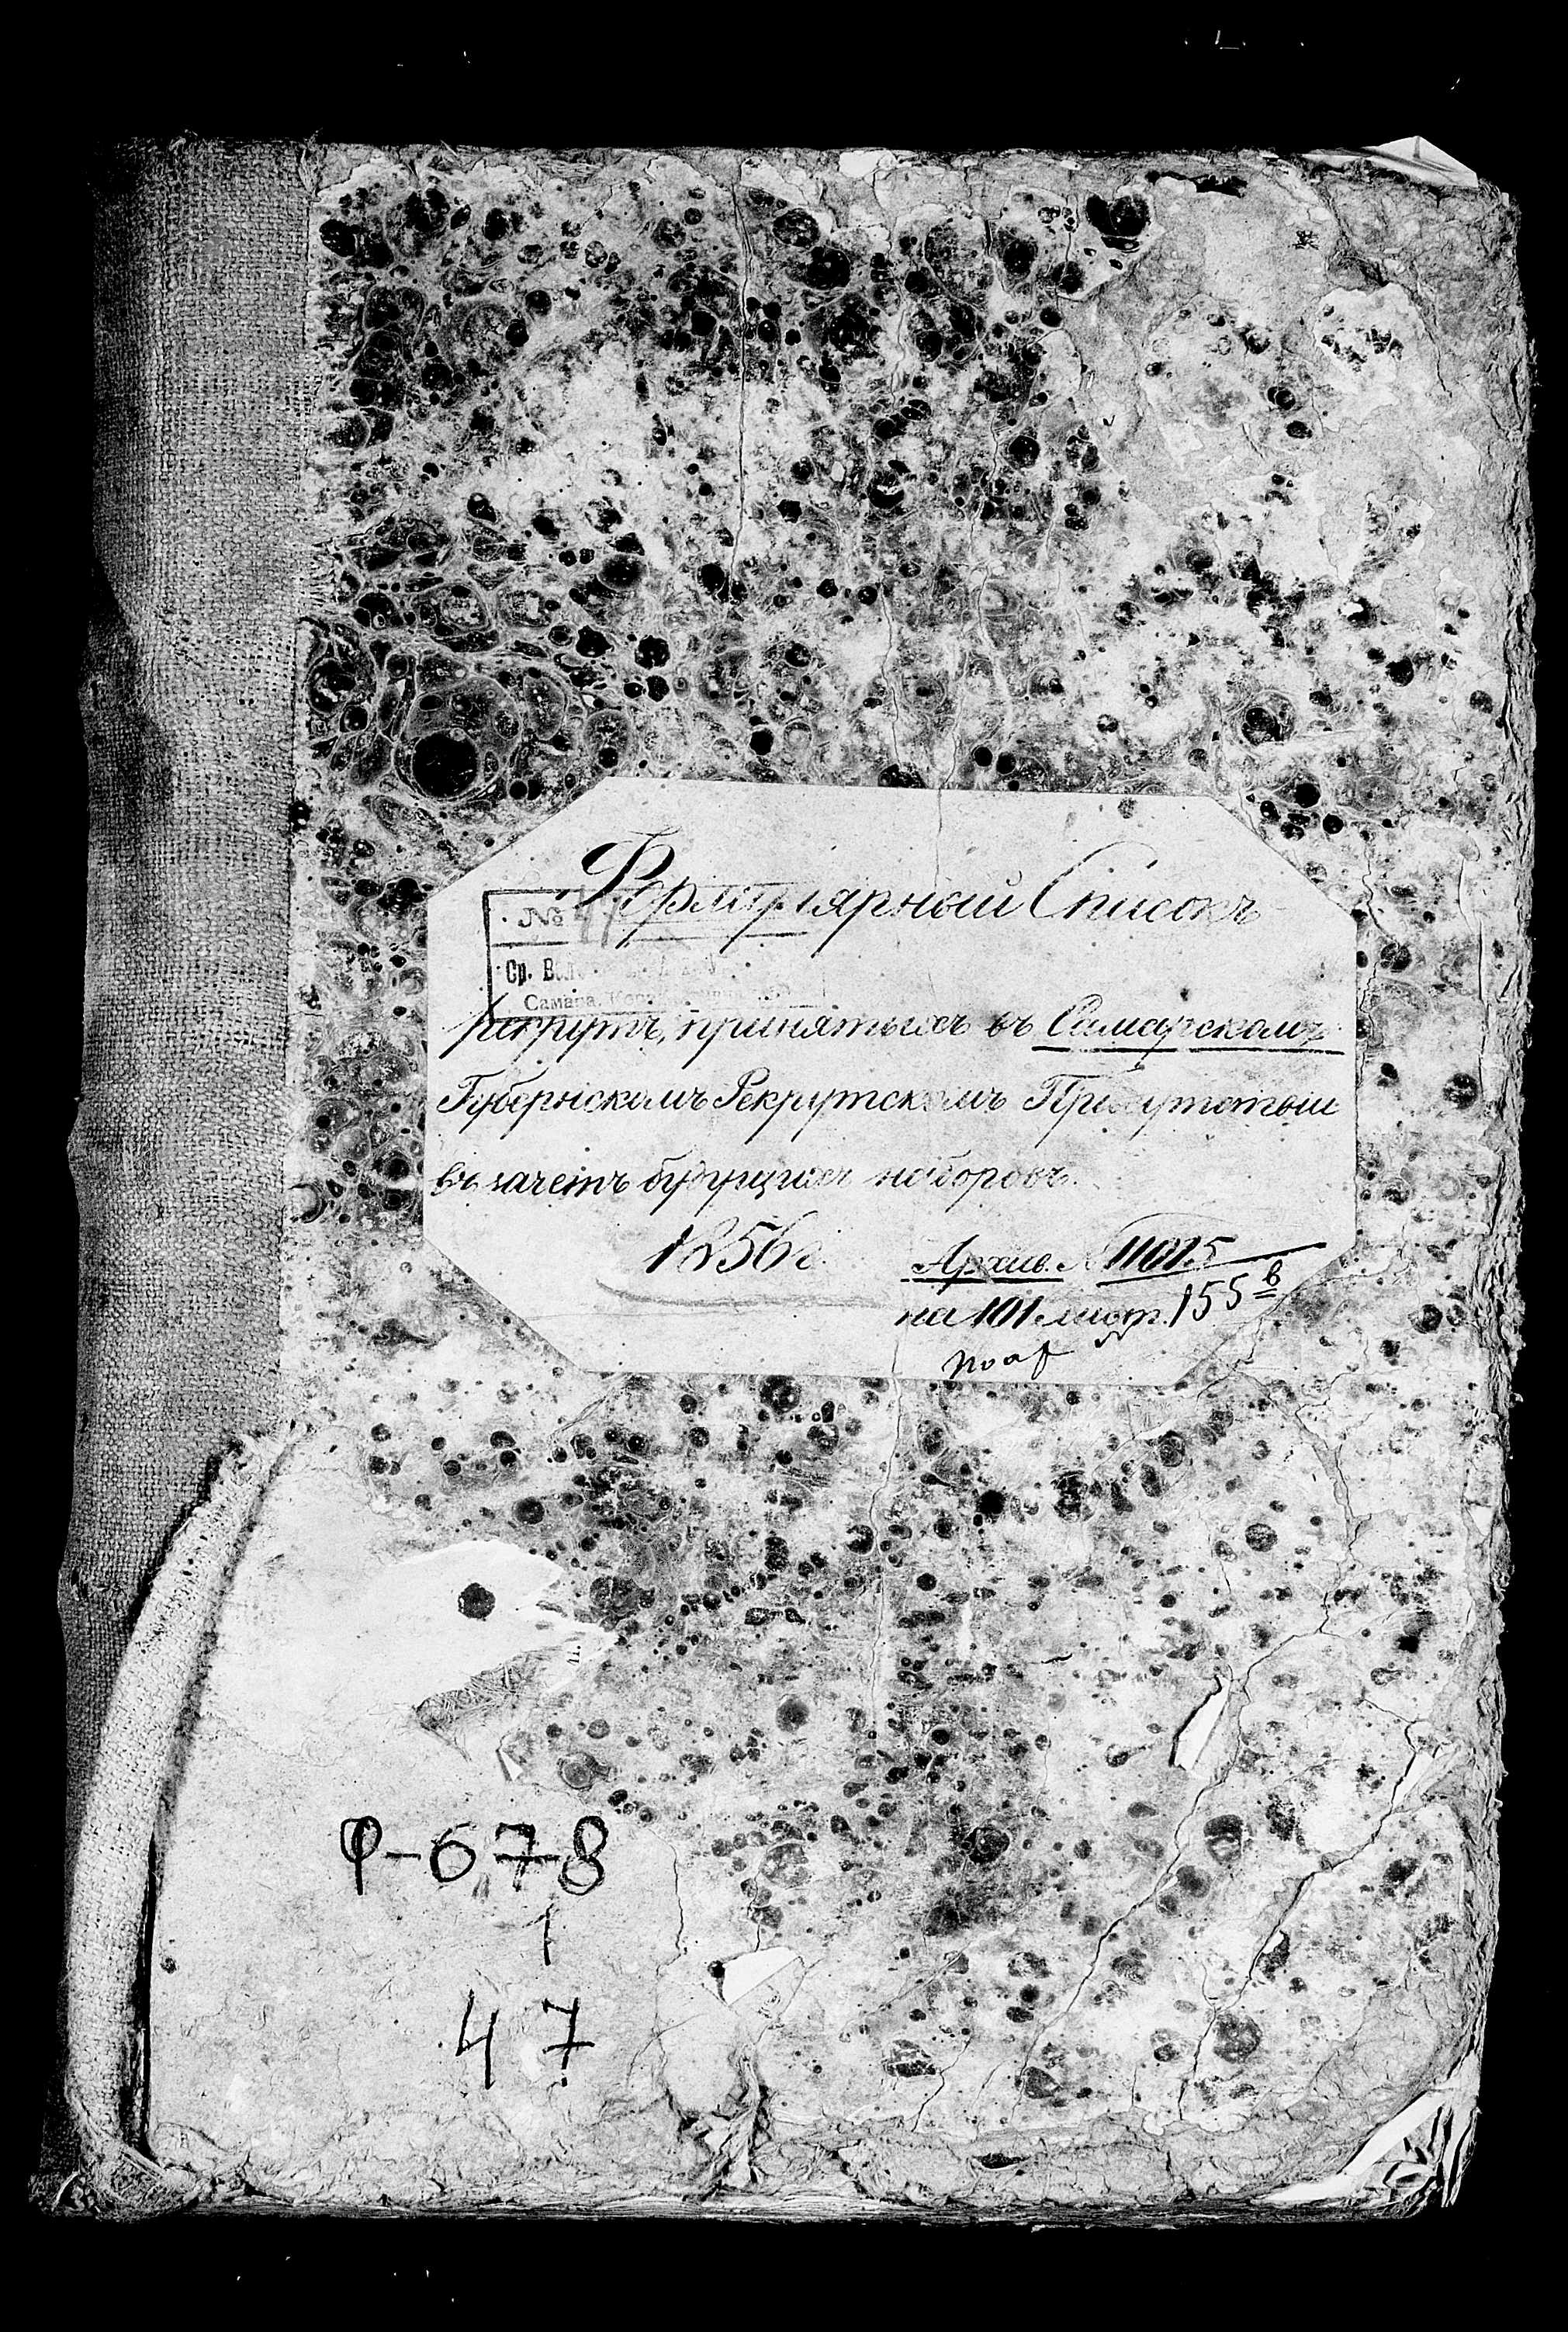 Формулярный Списокъ
№ 47
Ср. Вол.
Самара,
рекрутъ, принятыхъ въ Самарскомъ
Губернскомъ Рекрутскомъ Присутствіи
въ зачетъ будущихъ наборовъ.
1856 г.
Архив. № 11015
на 101 лист. 155 в
Ф-678
1
47